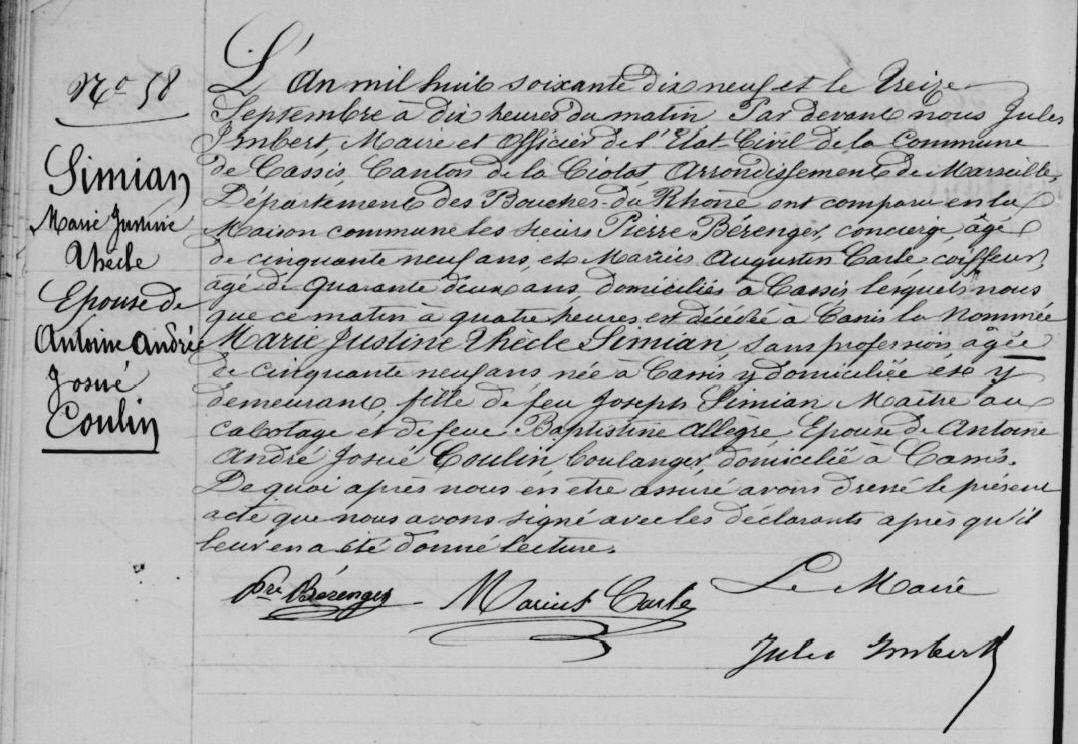 No 58
Simian
Marie Justine
Thècle
Epouse de
Antoine André
Josué
Coulin
L'An mil huit soixante dix neuf et le Treize
Septembre à dix heures du matin Par devant nous Jules
Imbert, Maire et Officier de l'Etat-Civil de la Commune
de Cassis, Canton de la Ciotat Arrondissement de Marseille,
Département des Bouches-du-Rhône ont comparu en la
Maison commune les sieurs Pierre Bérenger, concierge âgé
de cinquante neuf ans, et Marius Augustin Carle, coiffeur,
âgé de quarante deux ans, domiciliés à Cassis lesquels nous
que ce matin à quatre heures est décédée à Cassis la nommée
Marie Justine Thècle Simian sans profession âgée
de cinquante neuf ans née à Cassis y domiciliée et y
demeurant, fille de feu Joseph Simian Maître au
cabotage et de feue Baptistine Allègre, Epouse de Antoine
André Josué Coulin, boulanger, domicilié à Cassis.
De quoi après nous en être assuré avons dressé le présent
acte que nous avons signé avec les déclarants après qu'il
leur en a été donné lecture.
Pre Bérenger Marius Carle Le Maire
Jules Imbert